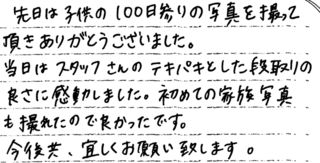 先日は子供の100日参りの写真を撮って
頂きありがとうございました。
当日はスタッフさんのテキパキとした段取りの
良さに感動しました。初めての家族写真
も撮れたので良かったです。
今後共、宜しくお願い致します。